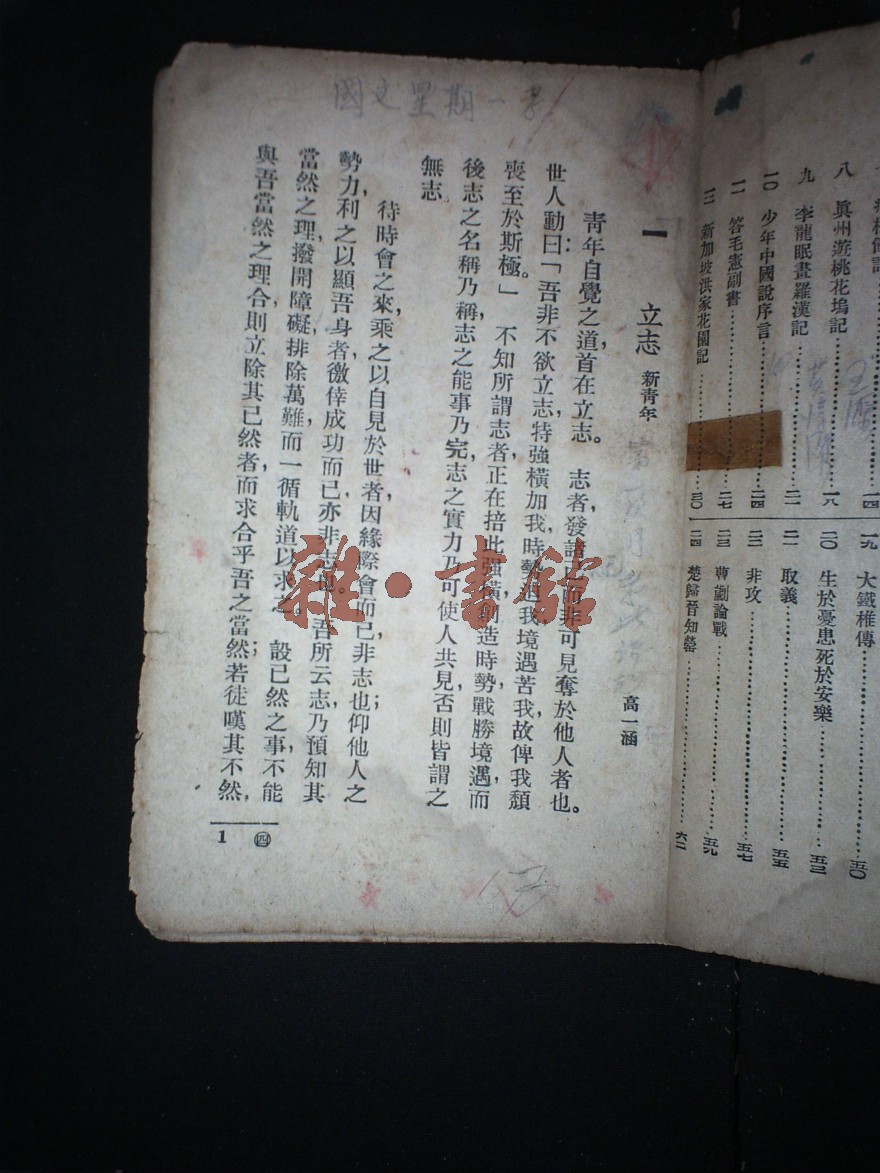 八　眞州遊桃花塢記……一八
九　李龍眠畫羅漢記……二一
一〇　少年中國說序言……二四
一一　答毛憲副書……二七
一二　新加坡洪家花園記……三〇
一九　大鐵椎傳……五〇
二〇　生於憂患死於安樂……五三
二一　取義……五五
二二　非攻……五七
二三　曹劌論戰……五九
二四　楚歸晉知罃……六二
國文星期一
一　立志　新青年　高一涵
青年自覺之道，首在立志。　志者，發諸己而非可見奪於他人者也。
世人動曰：「吾非不欲立志，特強橫加我，時勢迫我，境遇苦我，故俾我頹
喪至於斯極。」　不知所謂志者，正在掊此強橫，創造時勢，戰勝境遇，而
後志之名稱乃稱，志之能事乃完，志之實力乃可使人共見，否則皆謂之
無志。
待時會之來，乘之以自見於世者，因緣際會而已，非志也；仰他人之
勢力，利之以顯吾身者，徼倖成功而已，亦非志也。　吾所云志，乃預知其
當然之理，撥開障礙，排除萬難，而一循軌道以求之。　設已然之事，不能
與吾當然之理合，則立除其已然者，而求合乎吾之當然；若徒嘆其不然，
四
1
雜·書館